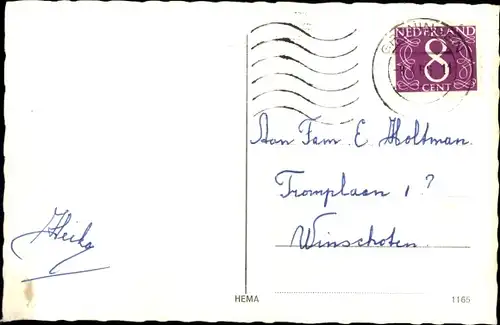 NEDERLAND
8
CENT
Aan Fam. E. Holtman.
Tromplaan 1?
Winschoten.
Heiko
HEMA
1165